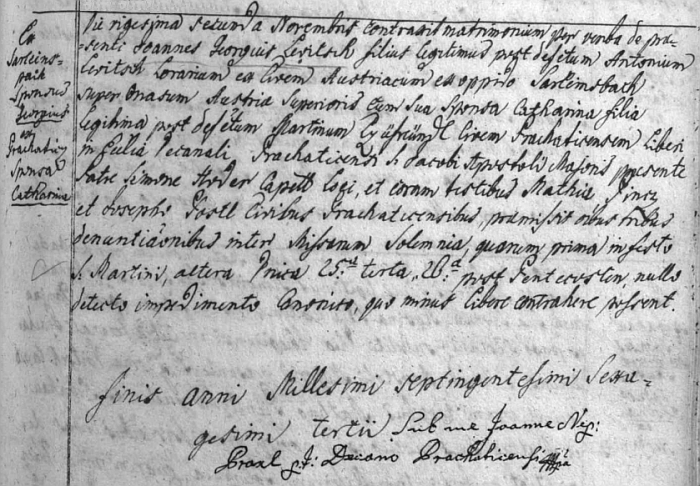 Ex
Sarleins-
pach
Sponsus
Georgius
ex
Prachatitz
Sponsa
Catharina
Die vigesima secunda Novembris contraxit matrimonium per verba de prae-
senti Joannes Georgius Levitsch filius legitimus post defctum Antonium
Levitsch Lorarium ex Civem Austriacum ex oppido Sarleinsbach
super Austriae Superioris cum sua Sponsa Catharina filia
legitima post defctum Martinum Civem Prachaticensem Liberi
in Ecclia Decanali Prachaticensi S. Jacobi Apostoli Majoris praesente
Patre Simone Capell Loci, et coram testibus Mathia
et Josepho Postl Civibus Prachaticensibus, praemissis tribus
denuntiaonibus inter Missarum Solemnia, quarum prima in festo
S. Martini, altera Dnica 25.ta tertia 26.ta post Pentecosten, nullo
detecto impedimento Canonico, quo minus libere contrahere possent.
finis anni Millesimi septingentesimi Sexa-
gesimi tertii Sub me Joanne Nep:
Praxl p.t: Decano Prachaticensi